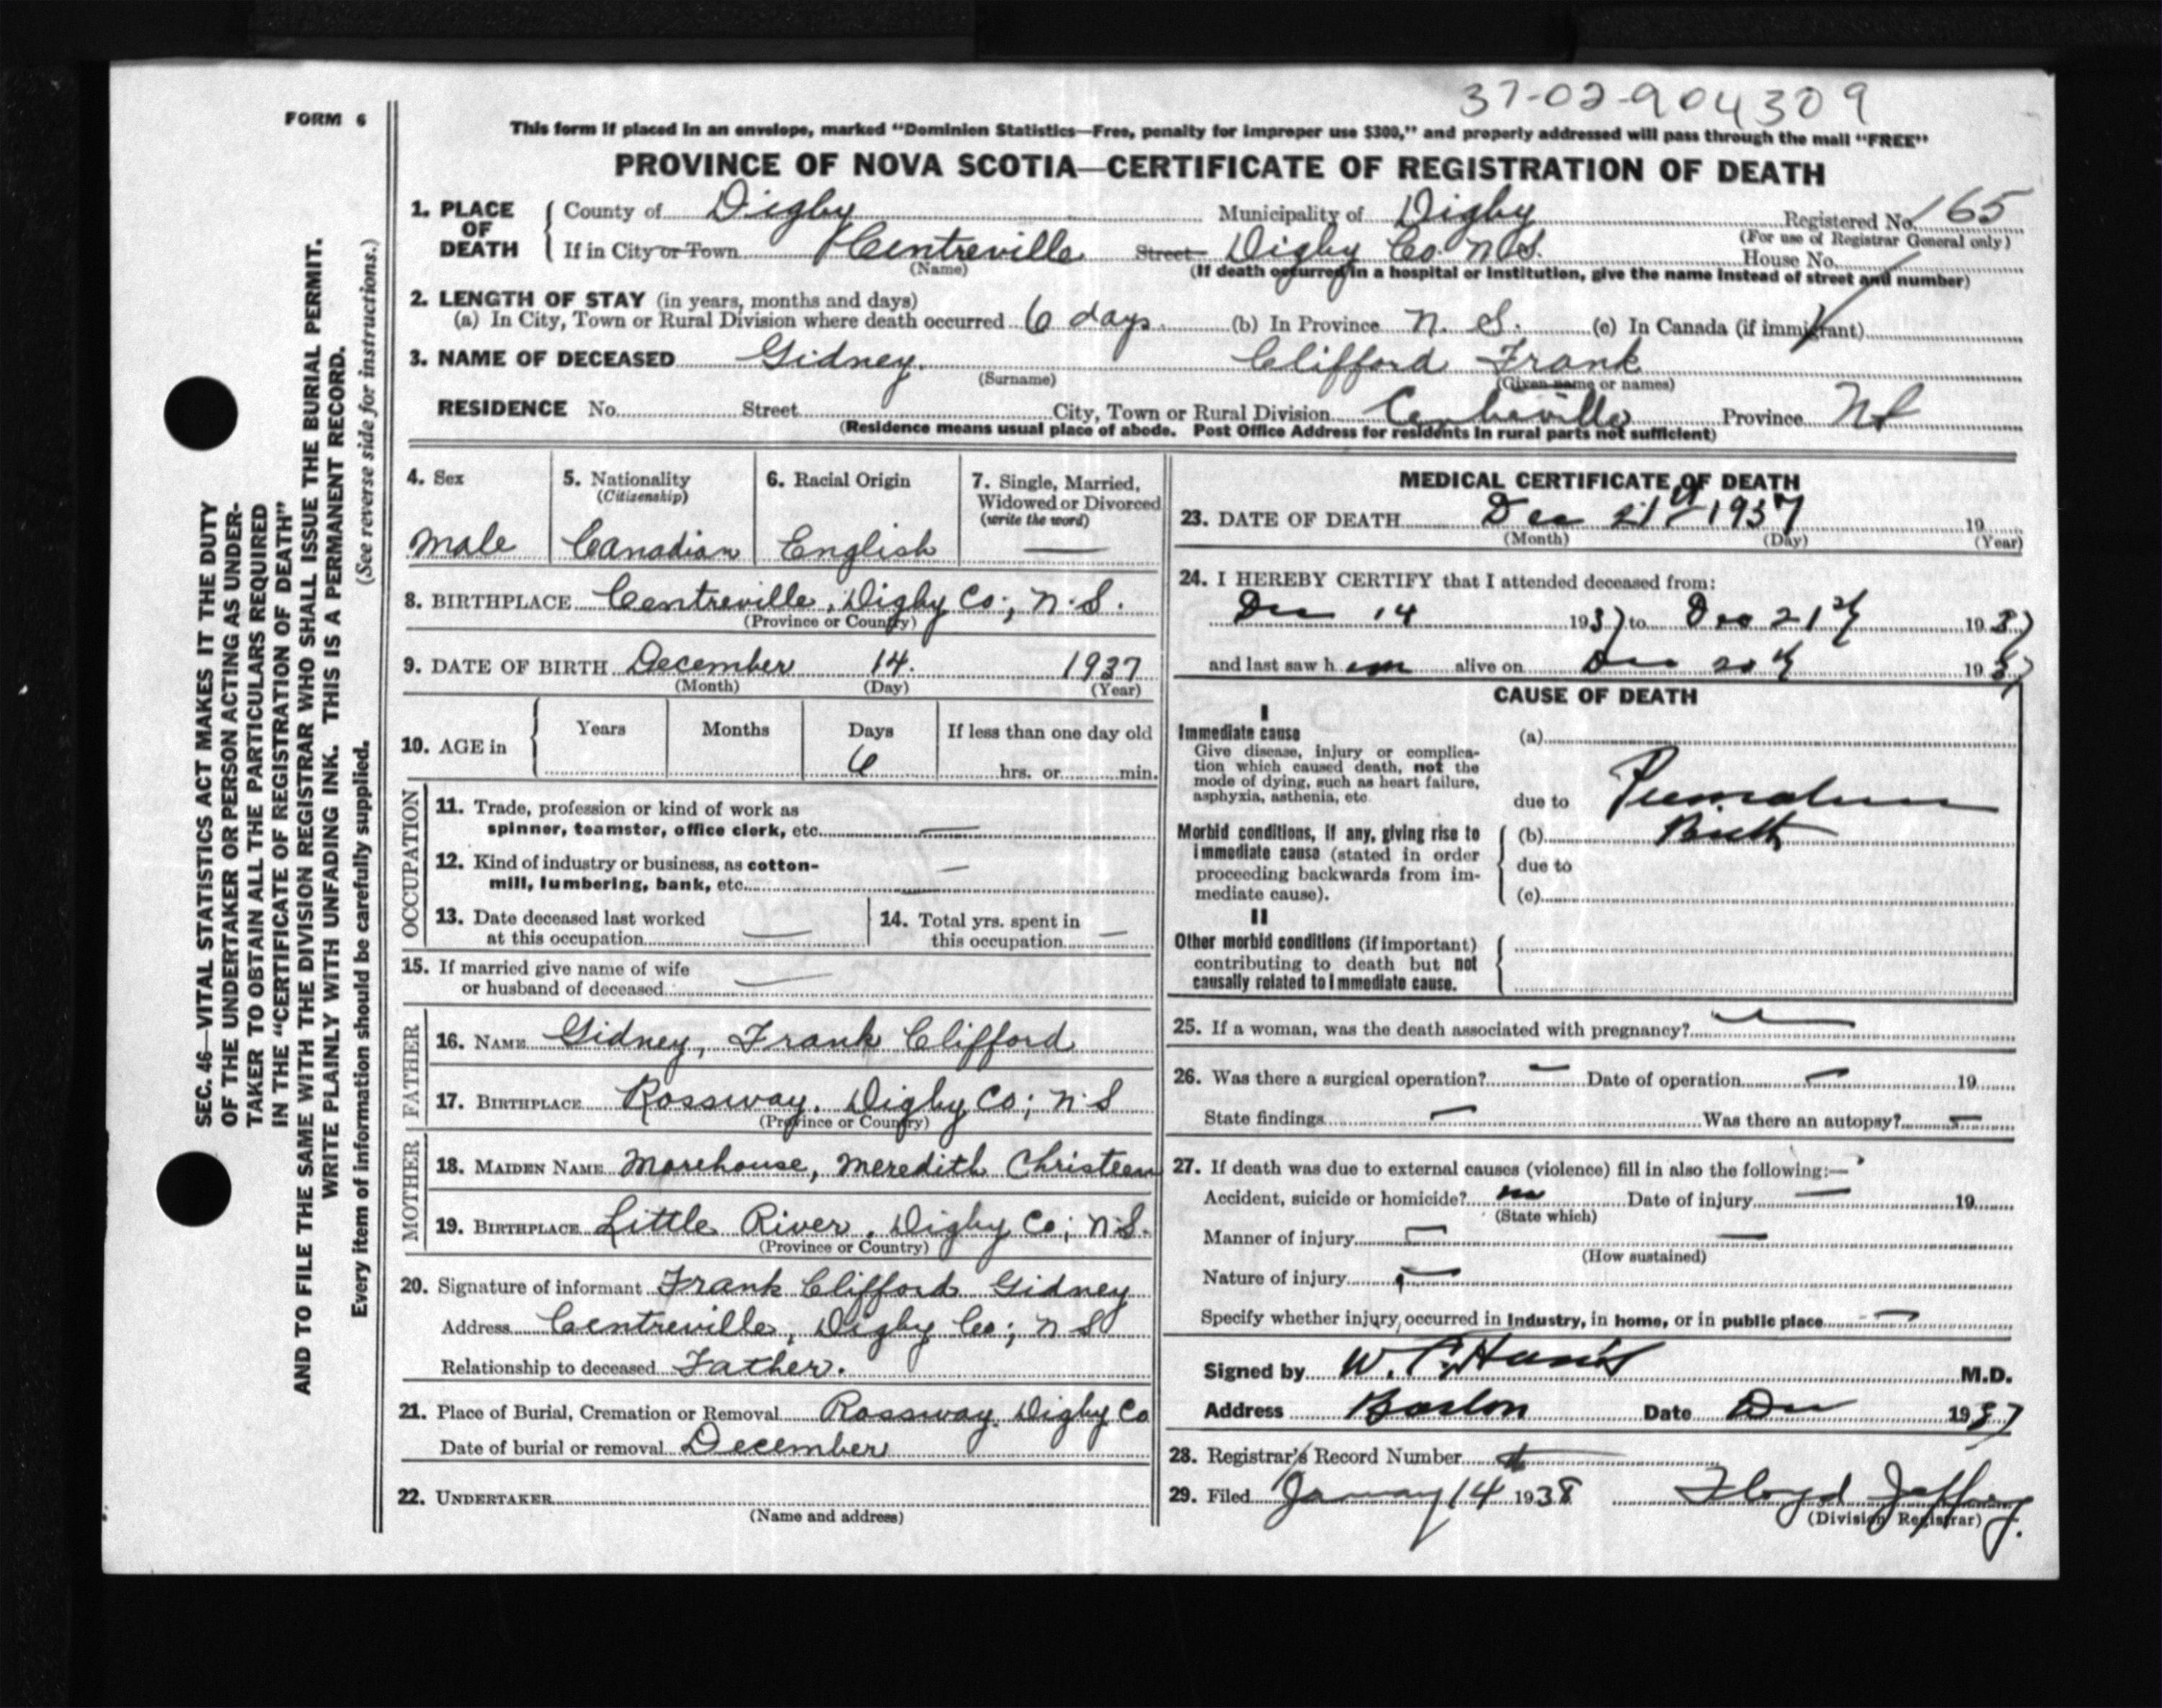 37-02-904309
FORM 6
This form if placed in an envelope, marked "Dominion Statistics—Free, penalty for improper use $300," and properly addressed will pass through the mail "FREE"
PROVINCE OF NOVA SCOTIA—CERTIFICATE OF REGISTRATION OF DEATH
SEC. 46—VITAL STATISTICS ACT MAKES IT THE DUTY
OF THE UNDERTAKER OR PERSON ACTING AS UNDER-
TAKER TO OBTAIN ALL THE PARTICULARS REQUIRED
IN THE "CERTIFICATE OF REGISTRATION OF DEATH"
AND TO FILE THE SAME WITH THE DIVISION REGISTRAR WHO SHALL ISSUE THE BURIAL PERMIT.
WRITE PLAINLY WITH UNFADING INK. THIS IS A PERMANENT RECORD.
Every item of information should be carefully supplied. (See reverse side for instructions.)
1. PLACE OF DEATH
County of Digby Municipality of Digby Registered No. 165
(For use of Registrar General only)
If in City or Town Centreville Street Digby Co N.S. House No.
(Name) (If death occurred in a hospital or institution, give the name instead of street and number)
2. LENGTH OF STAY (in years, months and days)
(a) In City, Town or Rural Division where death occurred 6 days (b) In Province N. S. (c) In Canada (if immigrant)
3. NAME OF DECEASED Gidney. Clifford Frank
(Surname) (Given name or names)
RESIDENCE No. Street City, Town or Rural Division Centreville Province NS
(Residence means usual place of abode. Post Office Address for residents in rural parts not sufficient)
4. Sex
male
5. Nationality
(Citizenship)
Canadian
6. Racial Origin
English
7. Single, Married,
Widowed or Divorced
(write the word)
—
8. BIRTHPLACE Centreville, Digby Co; N.S.
(Province or Country)
9. DATE OF BIRTH December 14. 1937
(Month) (Day) (Year)
10. AGE in Years Months Days If less than one day old
6 hrs. or min.
OCCUPATION
11. Trade, profession or kind of work as
spinner, teamster, office clerk, etc. —
12. Kind of industry or business, as cotton-
mill, lumbering, bank, etc. —
13. Date deceased last worked
at this occupation —
14. Total yrs. spent in
this occupation —
15. If married give name of wife
or husband of deceased —
FATHER
16. NAME Gidney, Frank Clifford
17. BIRTHPLACE Rossway. Digby Co; N.S
(Province or Country)
MOTHER
18. MAIDEN NAME Morehouse, Meredith Christeen
19. BIRTHPLACE Little River, Digby Co; N.S.
(Province or Country)
20. Signature of informant Frank Clifford Gidney
Address Centreville, Digby Co; N S
Relationship to deceased Father.
21. Place of Burial, Cremation or Removal Rossway. Digby Co
Date of burial or removal December
22. UNDERTAKER
(Name and address)
MEDICAL CERTIFICATE OF DEATH
23. DATE OF DEATH Dec 21st 1937 19
(Month) (Day) (Year)
24. I HEREBY CERTIFY that I attended deceased from:
Dec 14 1937 to Dec 21st 1937
and last saw h im alive on Dec 20th 1937
CAUSE OF DEATH
I
Immediate cause
Give disease, injury or complica-
tion which caused death, not the
mode of dying, such as heart failure,
asphyxia, asthenia, etc.
(a)
due to Premature
Morbid conditions, if any, giving rise to
immediate cause (stated in order
proceeding backwards from im-
mediate cause).
(b) Birth
due to
(c)
II
Other morbid conditions (if important)
contributing to death but not
causally related to immediate cause.
25. If a woman, was the death associated with pregnancy? —
26. Was there a surgical operation? — Date of operation — 19
State findings — Was there an autopsy? —
27. If death was due to external causes (violence) fill in also the following:—
Accident, suicide or homicide? no Date of injury — 19
(State which)
Manner of injury —
(How sustained)
Nature of injury —
Specify whether injury occurred in industry, in home, or in public place —
Signed by M.D.
Address Date Dec 1937
28. Registrar's Record Number
29. Filed January 14 1938 Floyd Jeffary.
(Division Registrar)